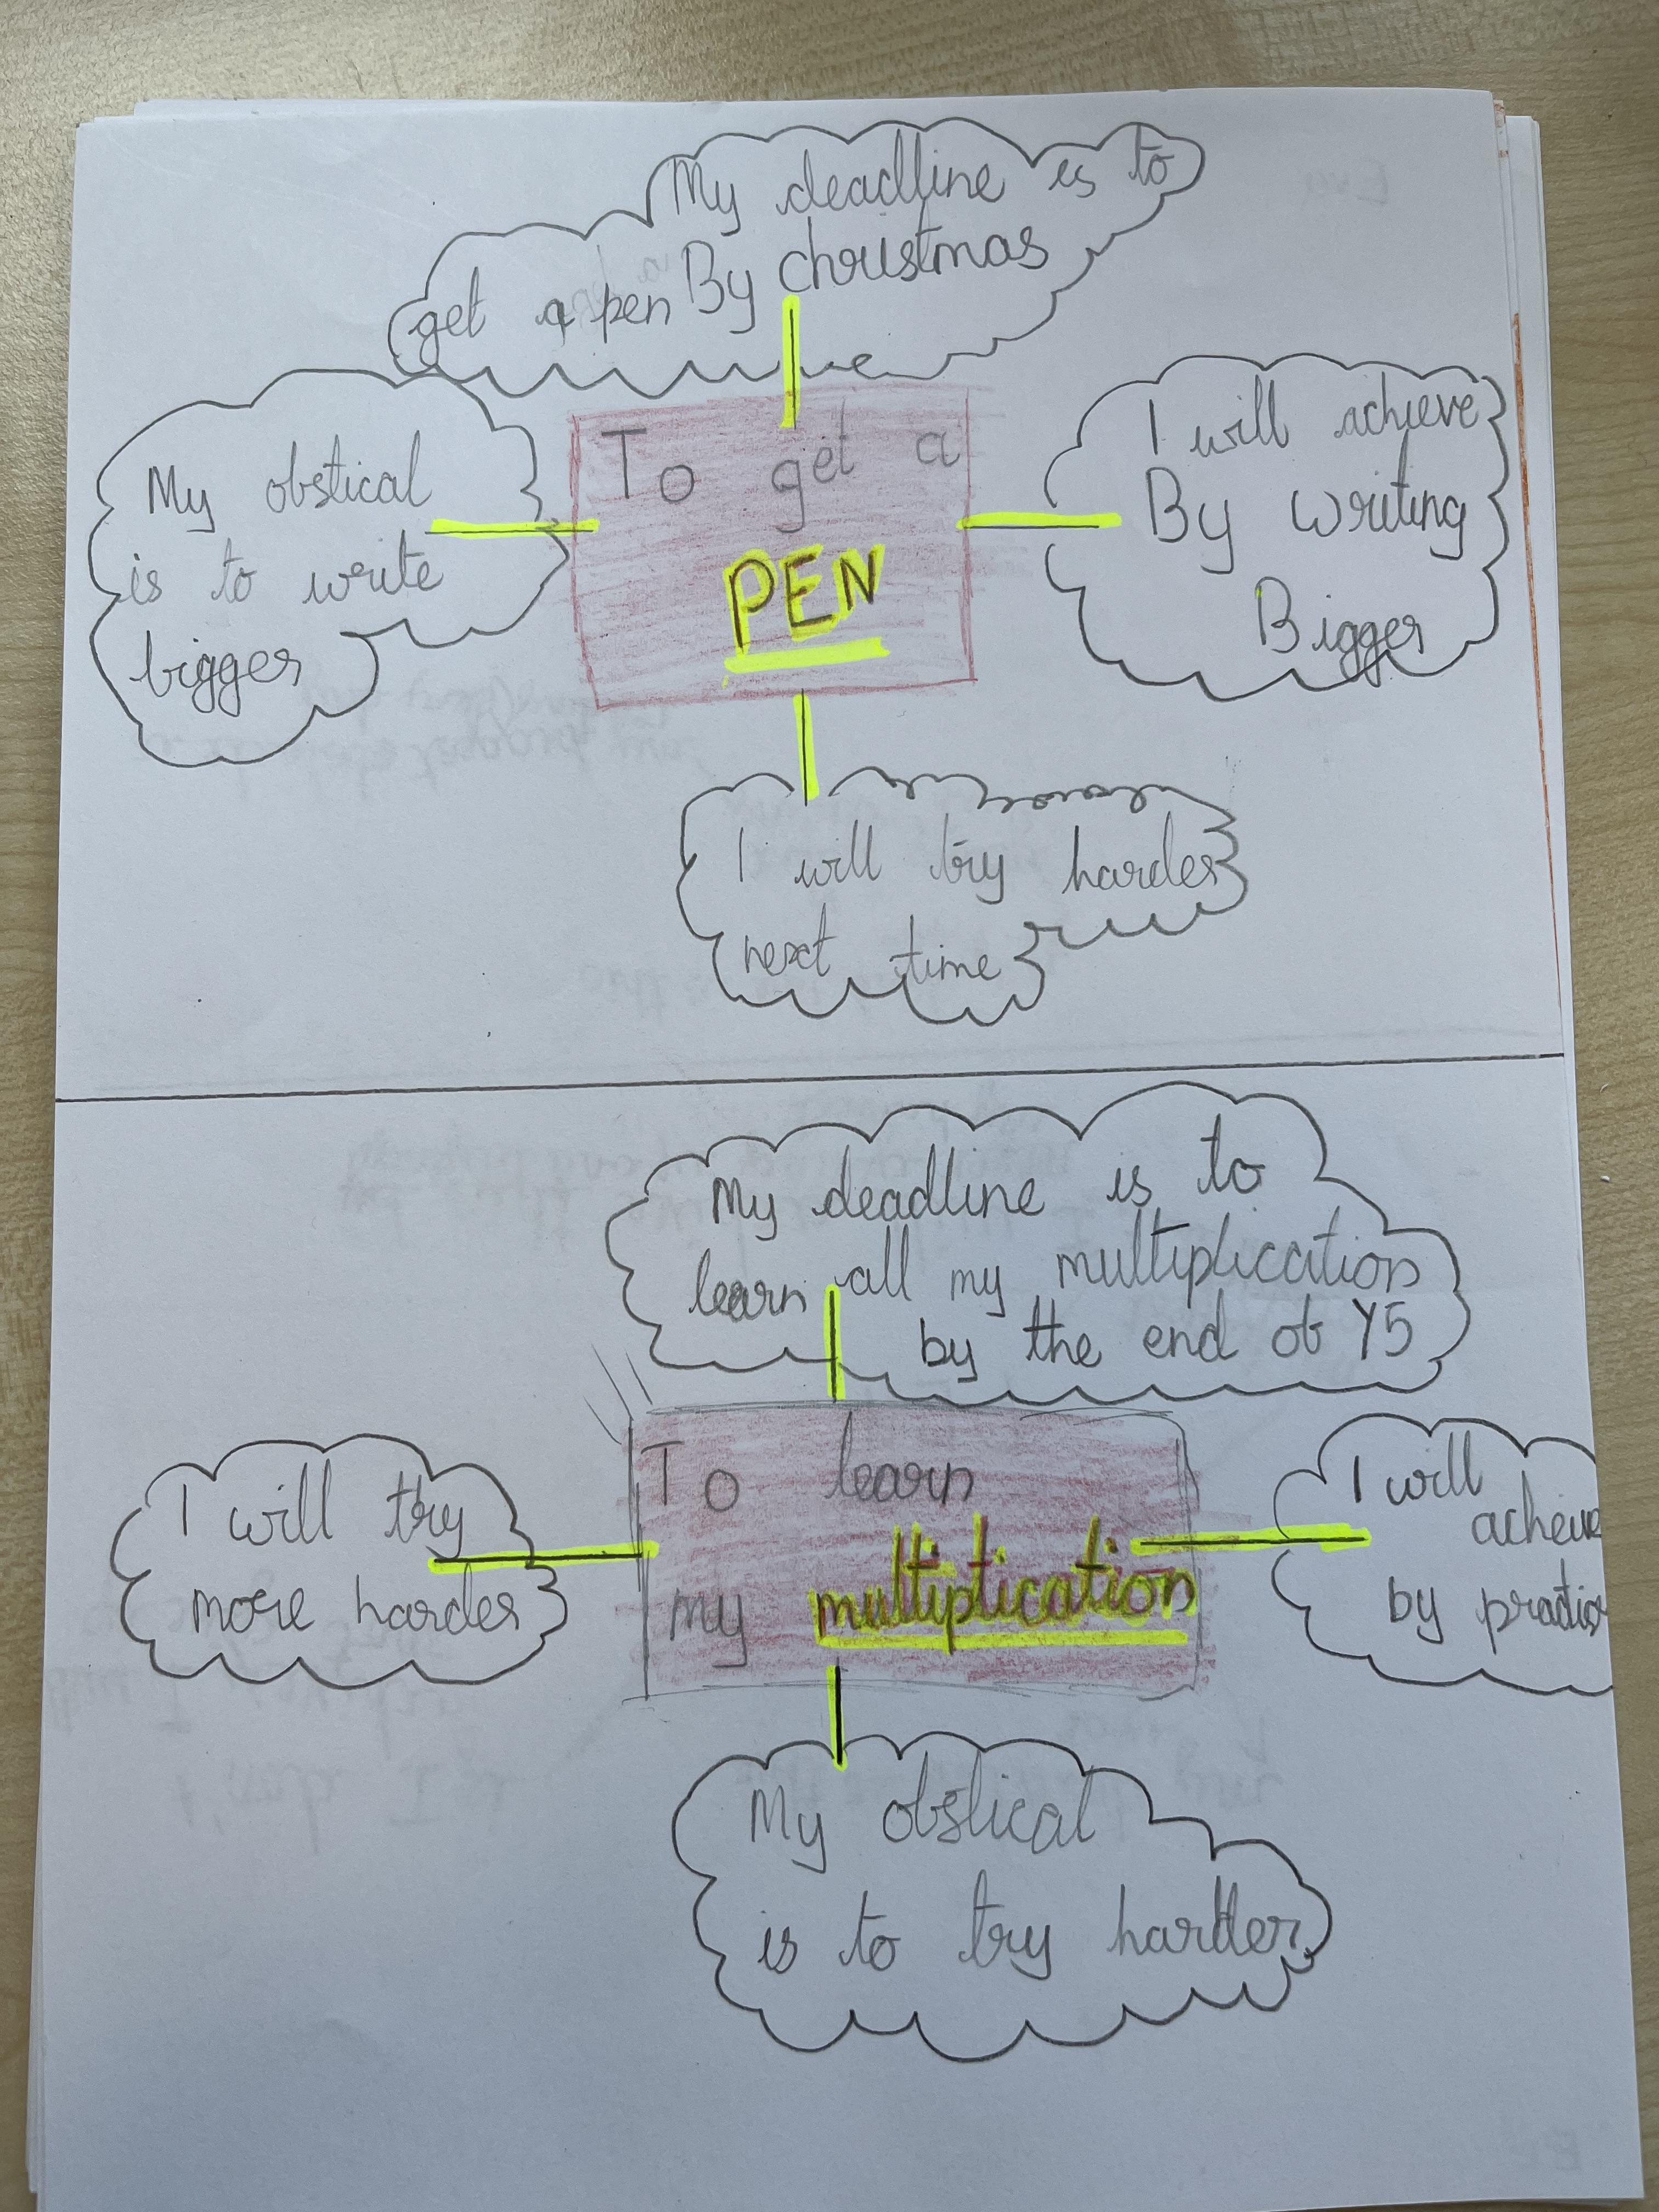 My deadline is to
get a pen By christmas
My obstical
is to write
bigger
To get a
PEN
I will achieve
By writing
Bigger
I will try harder
next time
My deadline is to
learn all my multiplication
by the end of Y5
I will try
more harder
To learn
my multiplication
I will
by
My obstical
is to try harder